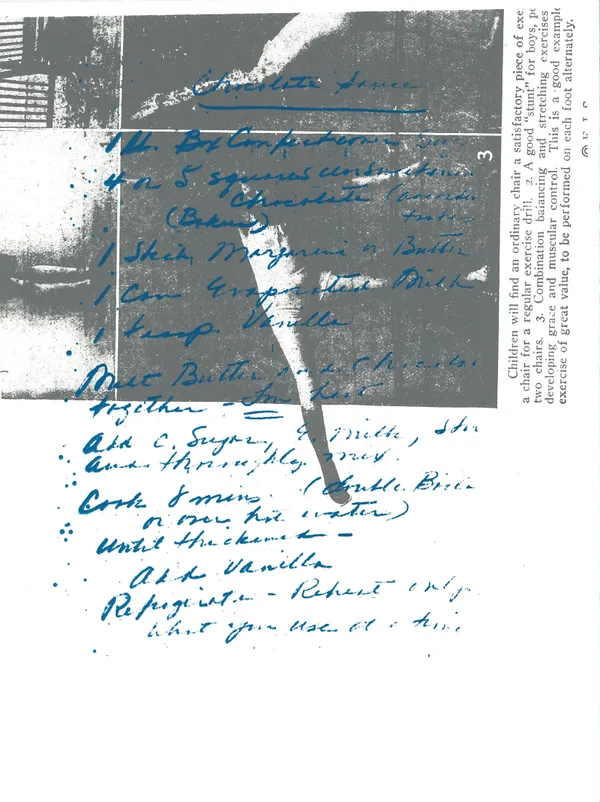 Chocolate Sauce
1 lb. Box Confectioners
4 or 5 squares unsweetened
Chocolate
(Bakers)
1 Stick Margarine or Butter
1 Can Evaporated Milk
1 teasp. Vanilla
Melt Butter and Chocolate
together - Low heat
Add C. Sugar, E. Milk, Stir
and thoroughly mix.
Cook 8 mins. (double Boiler
or over hot water)
Until thickened -
Add Vanilla
Refrigerate - Reheat only
what you use at a time
3
Children will find an ordinary chair a satisfactory piece of exe
a chair for a regular exercise drill. 2. A good "stunt" for boys, pe
two chairs. 3. Combination balancing and stretching exercises
developing grace and muscular control. This is a good example
exercise of great value, to be performed on each foot alternately.